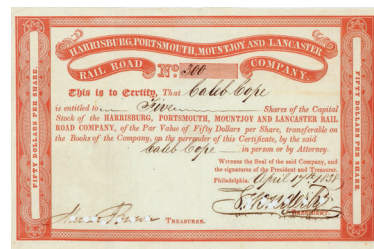 HARRISBURG, PORTSMOUTH, MOUNTJOY AND LANCASTER
RAIL ROAD No. 300 COMPANY.
This is to Certify, That Caleb Cope
is entitled to Five Shares of the Capital
Stock of the HARRISBURG, PORTSMOUTH, MOUNTJOY AND LANCASTER RAIL
ROAD COMPANY, of the Par Value of Fifty Dollars per Share, transferable on
the Books of the Company, on the surrender of this Certificate, by the said
Caleb Cope in person or by Attorney.
WITNESS the Seal of the said Company, and
the signatures of the President and Treasurer.
Philadelphia. April 17th 1838
TREASURER.
PRESIDENT.
FIFTY DOLLARS PER SHARE.
FIFTY DOLLARS PER SHARE.